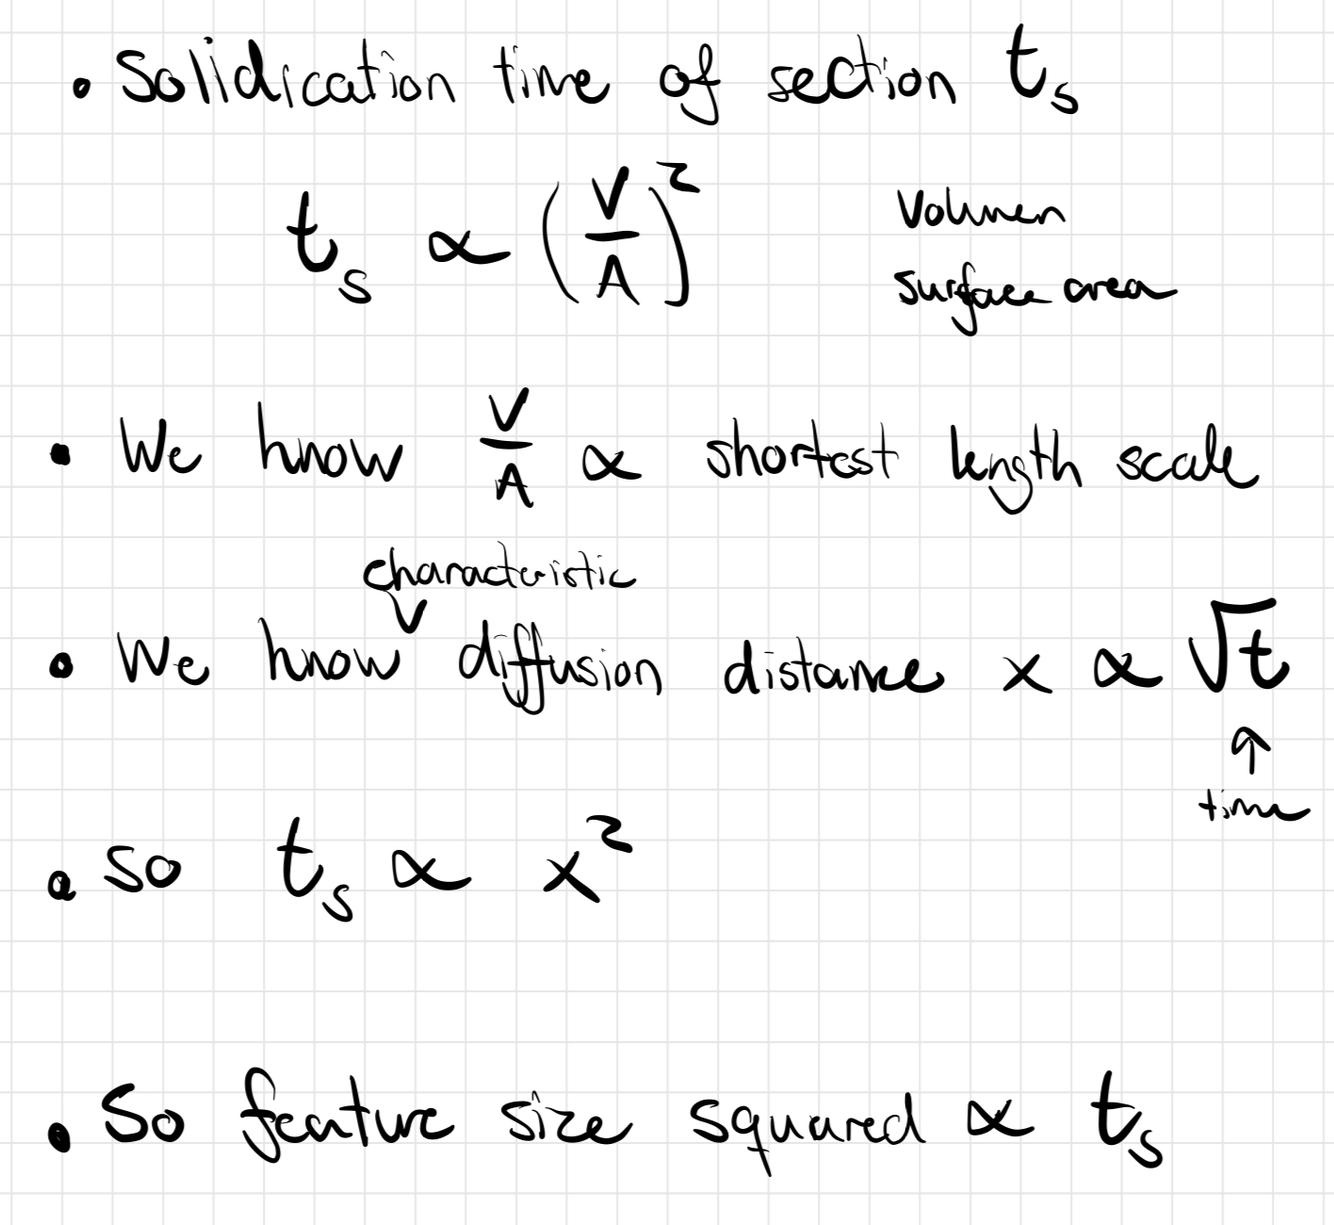 • Solidication time of section tₛ
tₛ ∝ (V/A)²
Volumen
surface area
• We know V/A ∝ shortest length scale
characteristic
• We know ∨ diffusion distance x ∝ √t
↑
time
• so tₛ ∝ x²
• So feature size squared ∝ tₛ